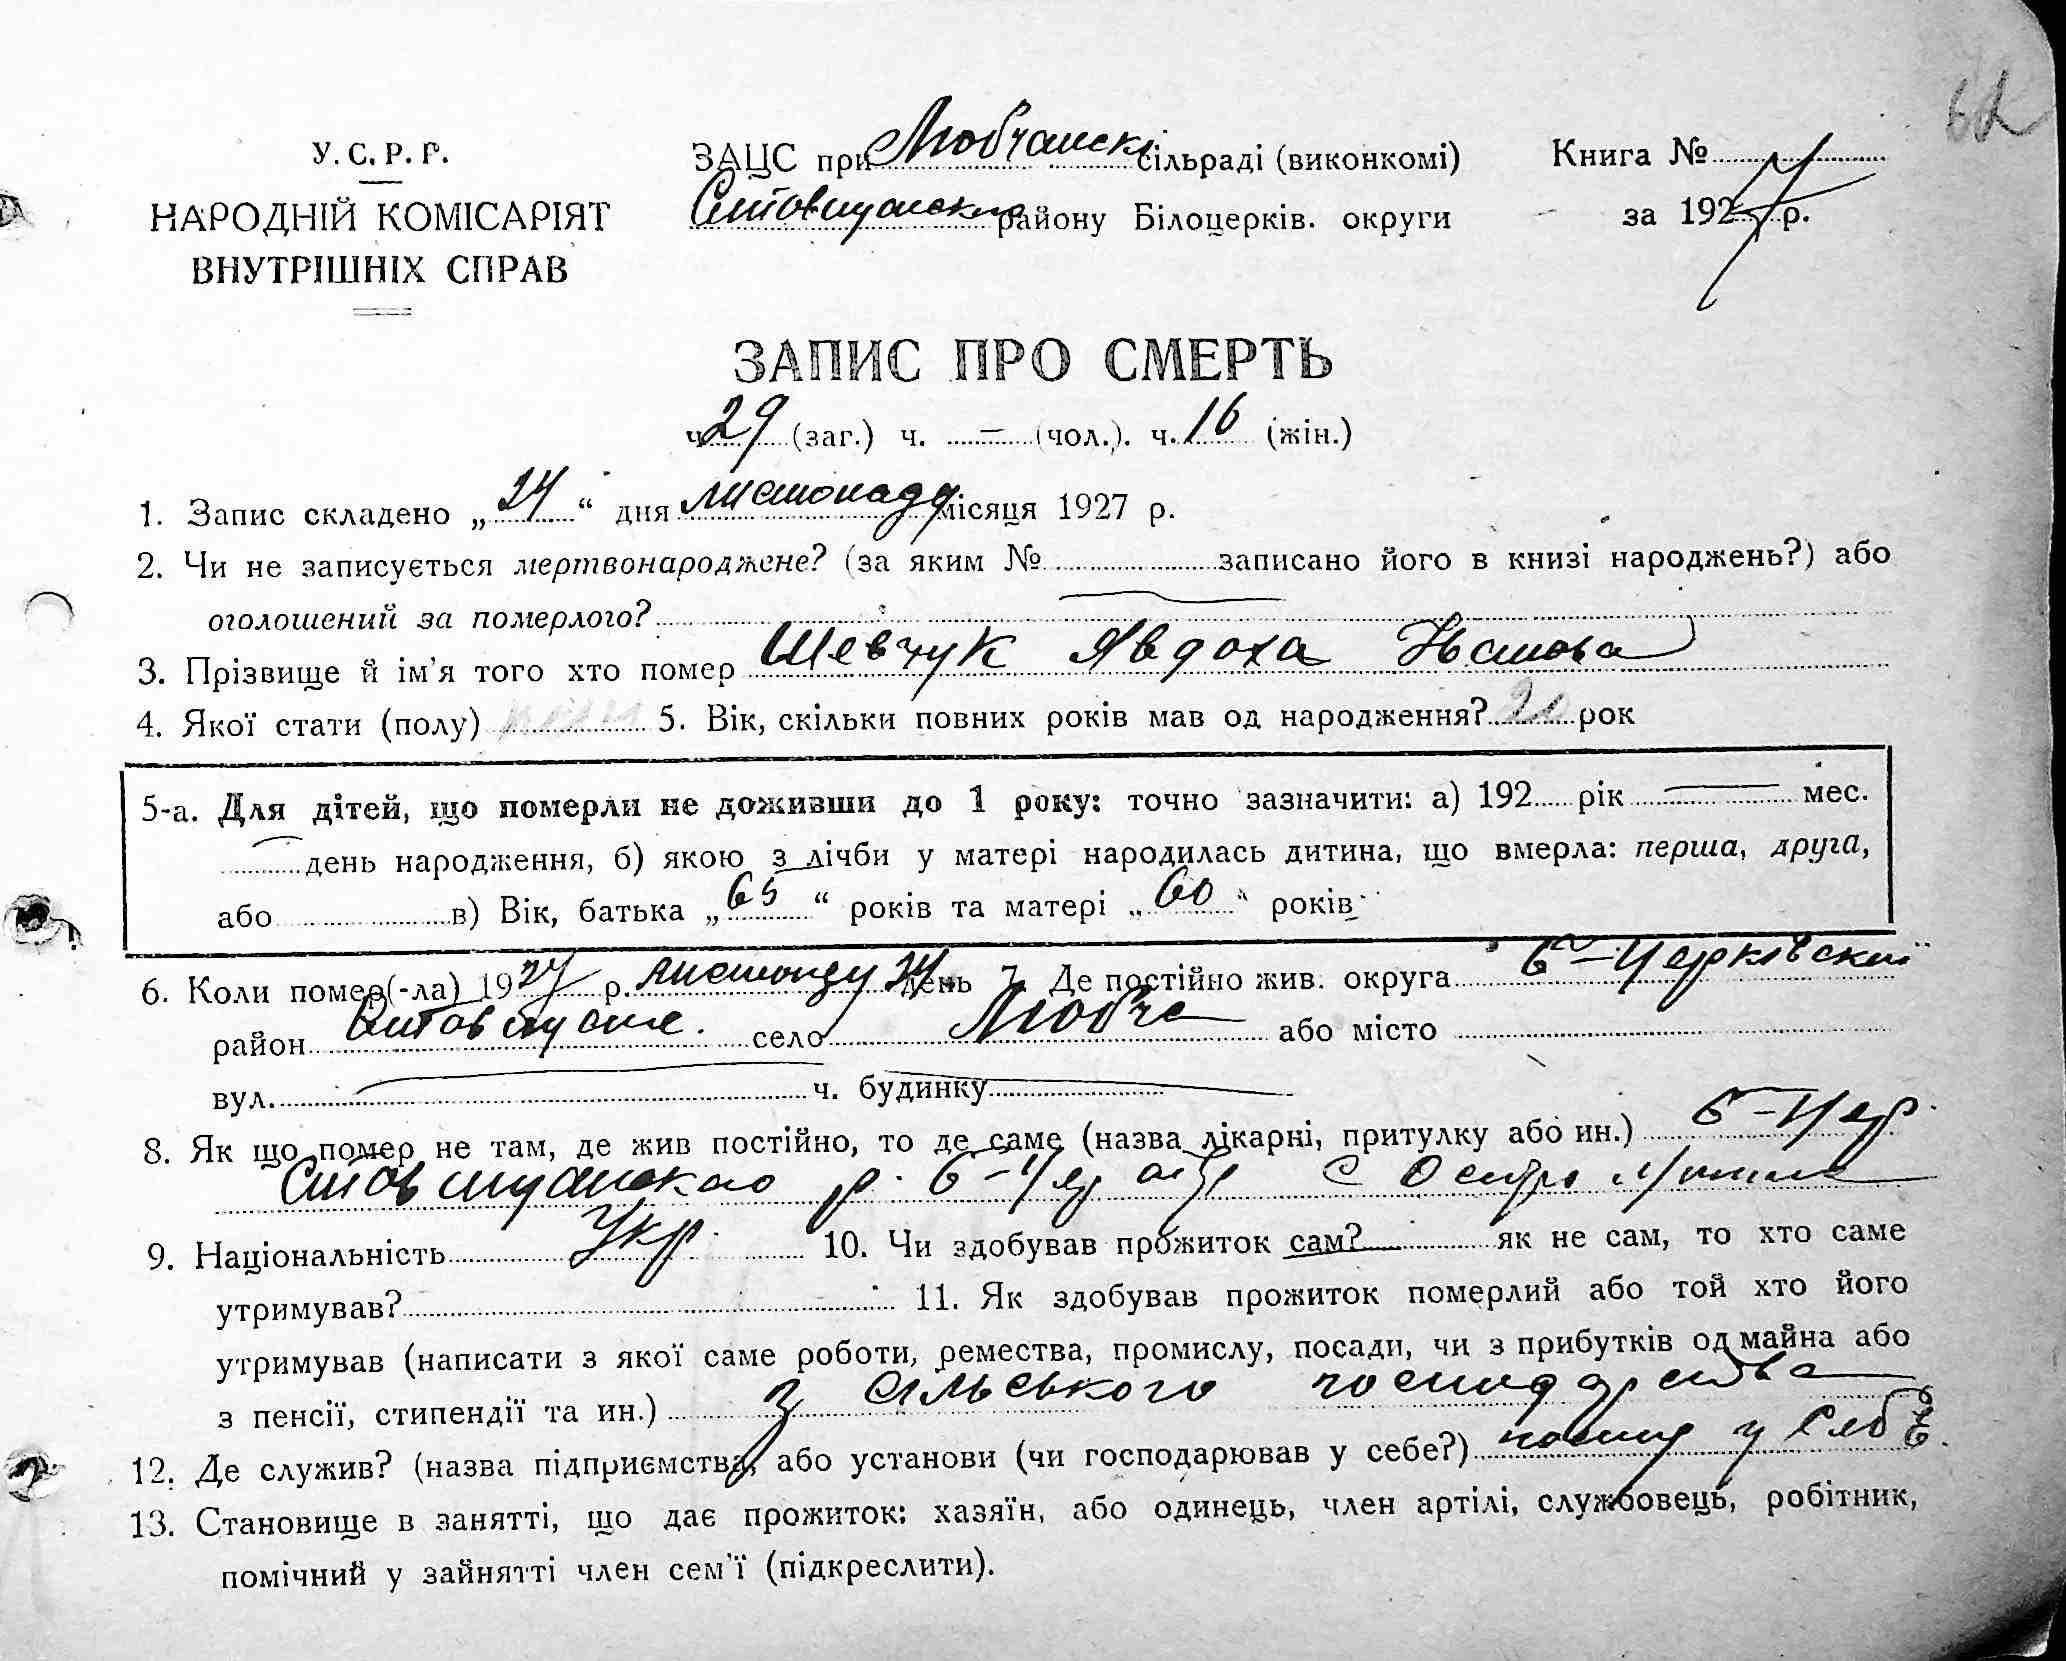 62
У. С. Р. Р.
НАРОДНІЙ КОМІСАРІЯТ
ВНУТРІШНІХ СПРАВ
ЗАЦС при Любчанскі сільраді (виконкомі)
району Білоцерків. округи
Книга №
за 1927 р.
ЗАПИС ПРО СМЕРТЬ
ч. 29 (заг.) ч. – (чол.). ч. 16 (жін.)
1. Запис складено „24“ дня листопаду місяця 1927 р.
2. Чи не записується мертвонароджене? (за яким № записано його в книзі народжень?) або
оголошений за померлого?
3. Прізвище й ім'я того хто помер Шевчук Явдоха Іванова
4. Якої стати (полу) 5. Вік, скільки повних років мав од народження? рок
5-а. Для дітей, що померли не доживши до 1 року: точно зазначити: а) 192 рік — мес.
день народження, б) якою з лічби у матері народилась дитина, що вмерла: перша, друга,
або в) Вік, батька „65“ років та матері „60“ років
6. Коли помер(-ла) 1927 р. листопаду 24 день 7. Де постійно жив. округа Б-Церківскиї
район село Любча або місто
вул. ч. будинку
8. Як що помер не там, де жив постійно, то де саме (назва лікарні, притулку або ин.) Б-Цер.
р. Б-Цер
9. Національність Укр 10. Чи здобував прожиток сам? як не сам, то хто саме
утримував? 11. Як здобував прожиток померлий або той хто його
утримував (написати з якої саме роботи, ремества, промислу, посади, чи з прибутків од майна або
з пенсії, стипендії та ин.) з сільського господарства
12. Де служив? (назва підприємства, або установи (чи господарював у себе?) у
13. Становище в занятті, що дає прожиток: хазяїн, або одинець, член артілі, службовець, робітник,
помічний у зайнятті член сем'ї (підкреслити).